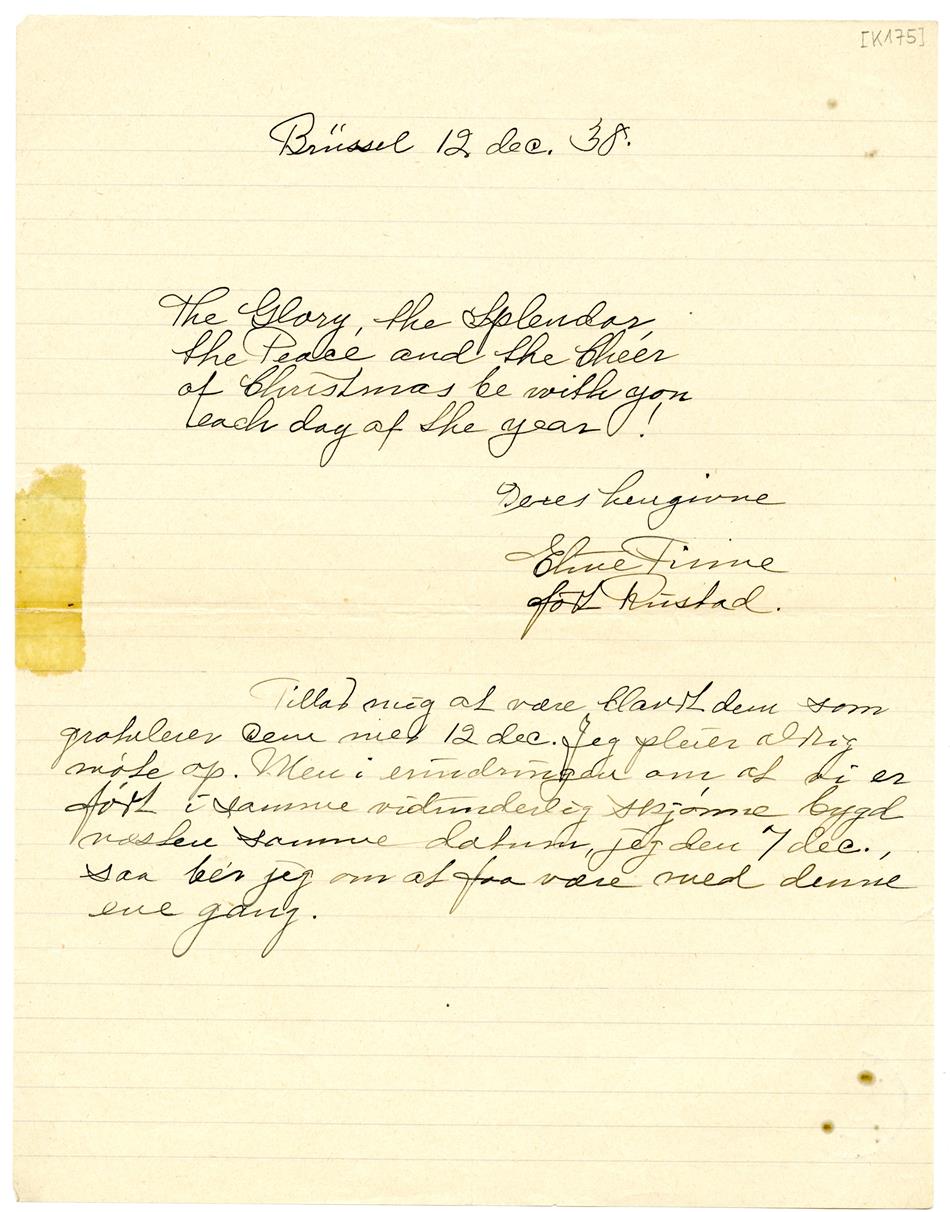 [K175]
Brüssel 12. dec. 38.
The Glory, the Splendor,
the Peace and the Cheer
of Christmas be with you
each day of the year!
Deres hengivne
Eline Finne
født Rustad.
Tillad mig at være blandt dem som
gratulerer dem med 12 dec. Jeg pleier aldrig
møte op. Men i erindringen om at vi er
født i samme vidunderlig skjønne bygd
næsten samme datum, jeg den 7 dec.,
saa bér jeg om at faa være med denne
ene gang.